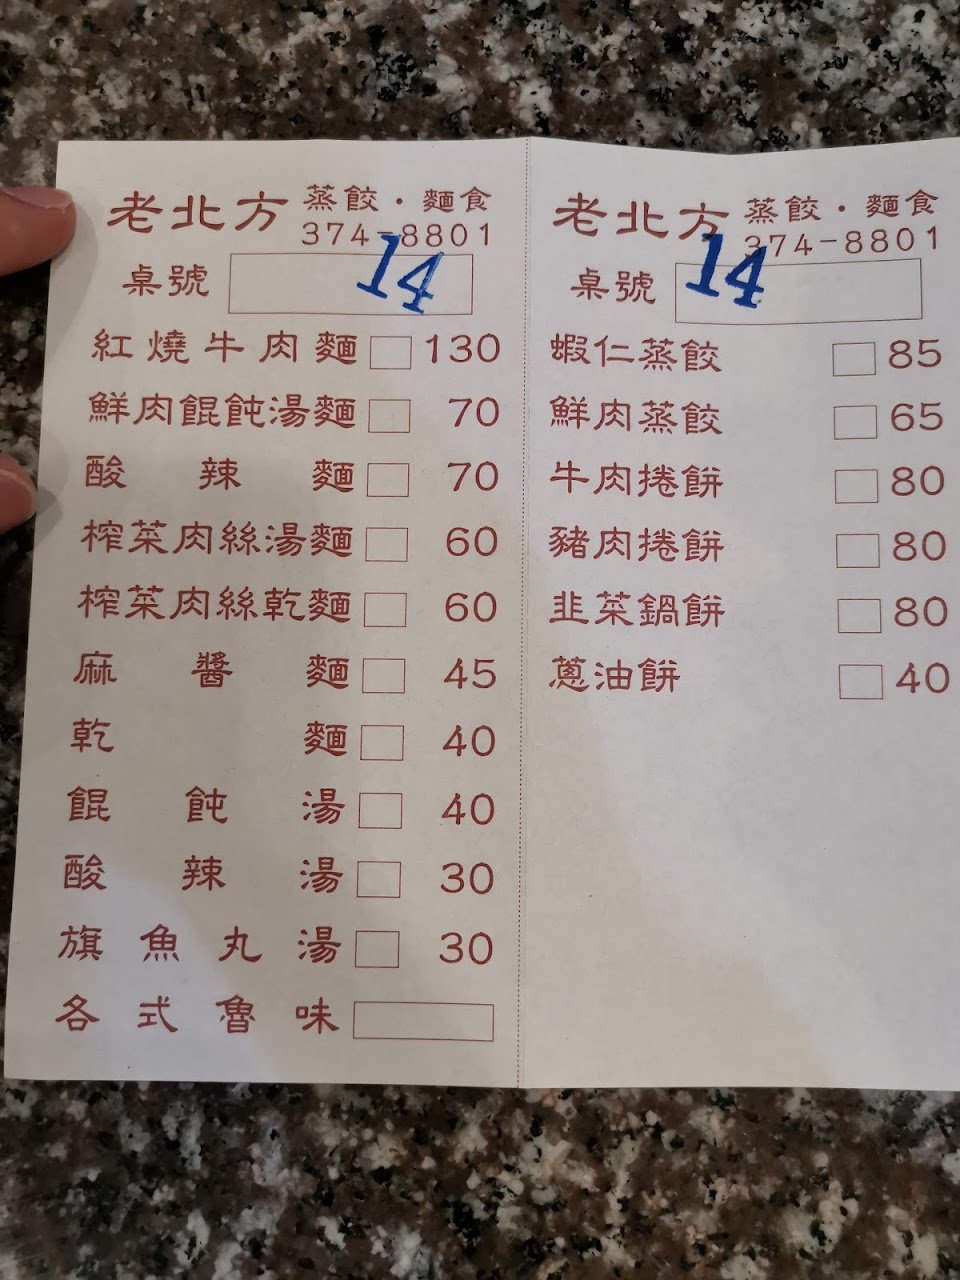 老北方 蒸餃·麵食
374-8801
桌號 14
紅燒牛肉麵 130
鮮肉餛飩湯麵 70
酸辣麵 70
榨菜肉絲湯麵 60
榨菜肉絲乾麵 60
麻醬麵 45
乾麵 40
餛飩湯 40
酸辣湯 30
旗魚丸湯 30
各式魯味
老北方 蒸餃·麵食
374-8801
桌號 14
蝦仁蒸餃 85
鮮肉蒸餃 65
牛肉捲餅 80
豬肉捲餅 80
韭菜鍋餅 80
蔥油餅 40